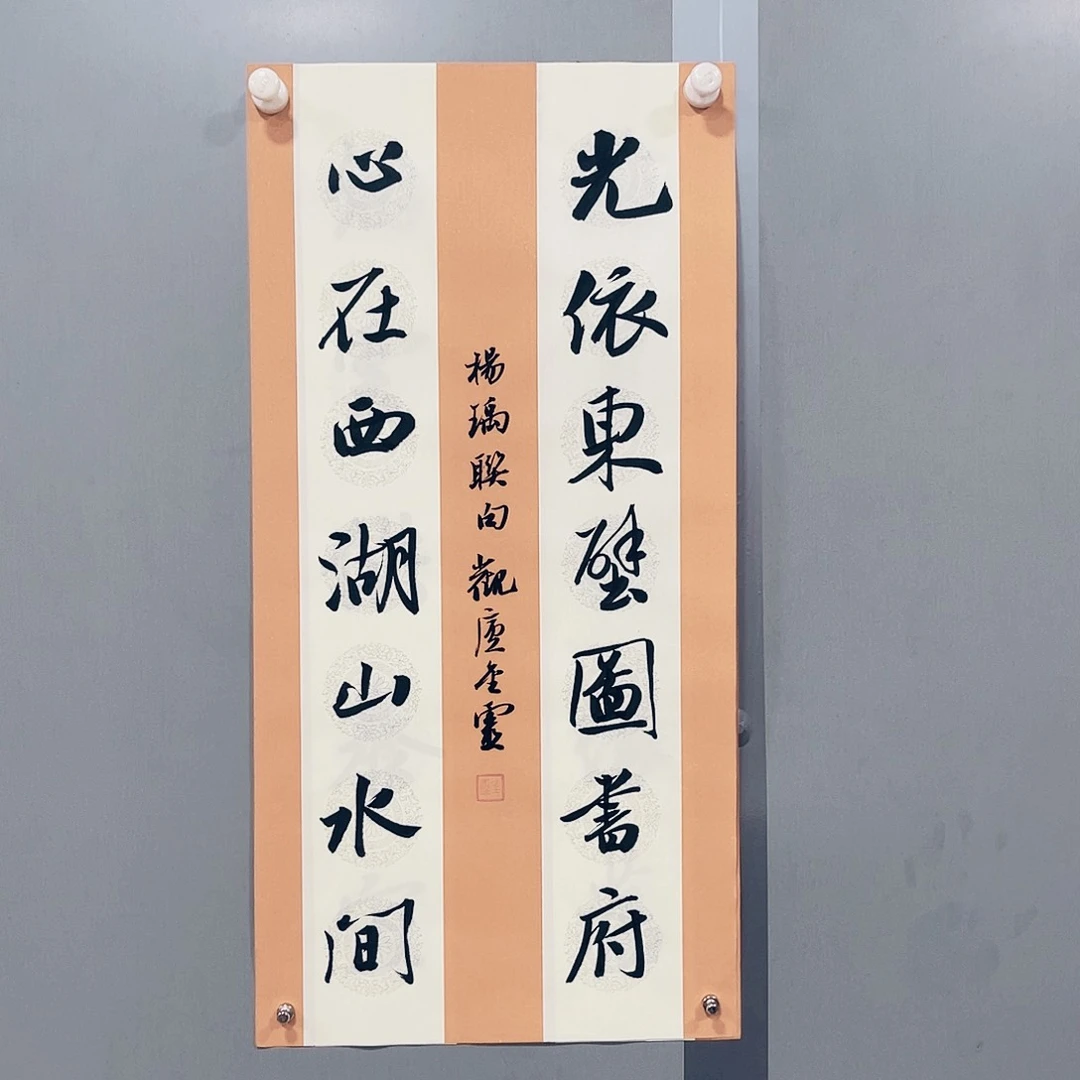 光依東壁圖書府
心在西湖山水間
楊瑀聯句 觀廬金霊